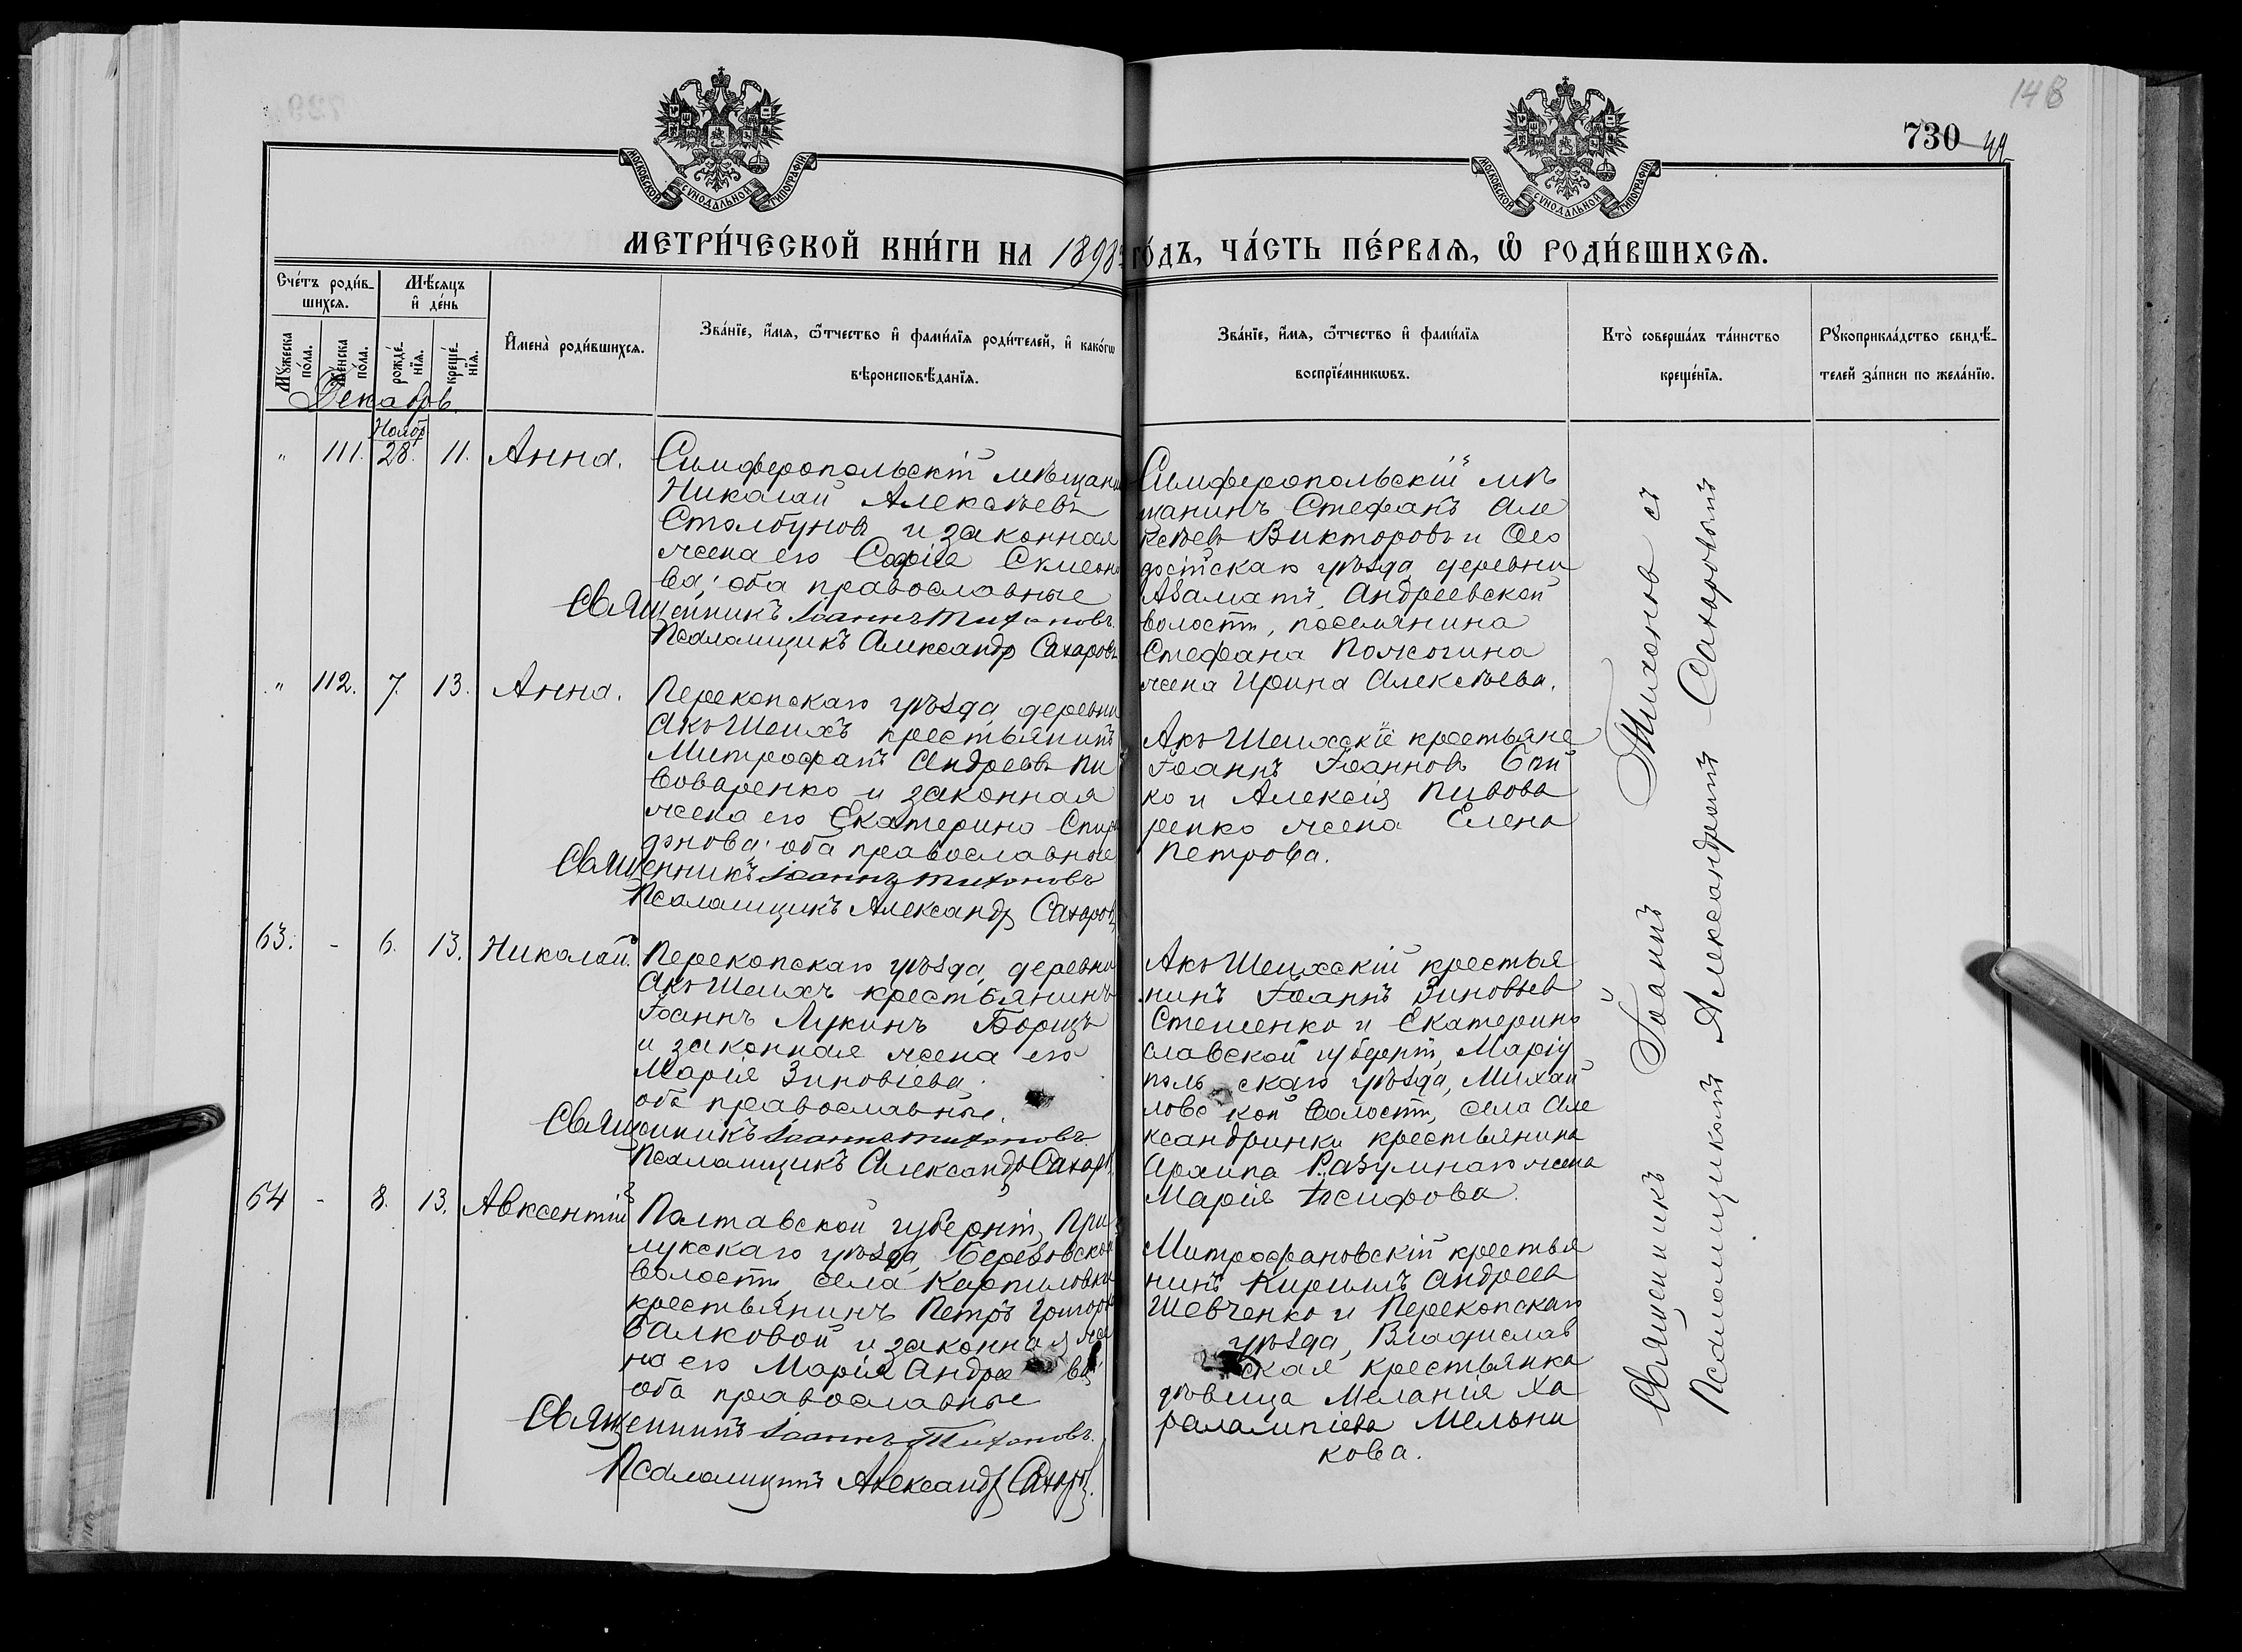 148
730
49
МОСКОВСКОЙ СУНОДАЛЬНОЙ ТИПОГРАФІИ
МОСКОВСКОЙ СУНОДАЛЬНОЙ ТИПОГРАФІИ
МЕТРИ́ЧЕСКОЙ КНИ́ГИ НА 1898 ГО́ДЪ, ЧА́СТЬ ПЕ́РВАѦ, Ѡ҆ РОДИ́ВШИХСѦ.
Сче́тъ роди́в-
шихсѧ.
Мѣ́сѧцъ
и҆ де́нь
Мꙋ́жеска
по́ла.
Же́нска
по́ла.
рожде́-
нїѧ.
креще́-
нїѧ.
И҆мена̀ роди́вшихсѧ.
Зва́нїе, и҆́мѧ, ѻ҆́тчество и҆ фами́лїѧ роди́телей, и҆ како́гѡ
вѣроисповѣ́данїѧ.
Зва́нїе, и҆́мѧ, ѻ҆́тчество и҆ фами́лїѧ
воспрїе́мникѡвъ.
Кто̀ соверша́лъ та́инство
креще́нїѧ.
Рꙋкоприкла́дство свидѣ́-
телей за́писи по жела́нїю.
Декабрь.
Нояб
" 111. 28. 11. Анна.
Симферопольскій мѣщани
Николай Алексѣевъ
Столбуновъ и законная
жена его Софія Симеоно
ва; оба православные
Священникъ Іоаннъ Тихоновъ
Псаломщикъ Александр Сахаровъ
Симферопольскій мѣ
щанинъ Стефанъ Але
ксѣевъ Викторовъ и Ѳео
досійскаго уѣзда деревни
Абаматъ, Андреевской
волости, поселянина
Стефана Пожогина
жена Ирина Алексѣева.
" 112. 7. 13. Анна.
Перекопскаго уѣзда деревни
Акъ Шеихъ крестьянинъ
Митрофанъ Андреевъ Пи
воваренко и законная
жена его Екатерина Спири
донова: оба православные
Священникъ Іоаннъ Тихоновъ
Псаломщикъ Александр Сахаровъ
Акъ Шеихскіе крестьяне
Іоаннъ Іоанновъ Бой
ко и Алексія Пивова
ренко жена Елена
Петрова.
63. - 6. 13. Николай.
Перекопскаго уѣзда, деревни
Акъ Шеихъ крестьянинъ
Іоаннъ Лукинъ Борицъ
и законная жена его
Марія Зиновіева.
оба православные.
Священникъ Іоаннъ Тихоновъ
Псаломщикъ Александръ Сахаровъ
Акъ Шеихскій крестья
нинъ Іоаннъ Зиновьев
Стеценко и Екатерино
славской губерніи, Маріу
поль скаго уѣзда, Михай
ловс кой волости, села Але
ксандринки крестьянина
Архипа Разумнаго жена
Марія Іосифова.
64 - 8. 13. Авксентій
Полтавской губерніи, При
лукскаго уѣзда Березовской
волости села Карпиловки
крестьянинъ Петръ Григорьев
Балковой и законная же
на его Марія Андрее ва;
оба православные
Священникъ Іоаннъ Тихоновъ.
Псаломщикъ Александр Сахаровъ.
Митрофановскій крестья
нинъ Кириллъ Андреев
Шевченко и Перекопскаго
уѣзда, Владислав
ская крестьянка
дѣвица Меланія Ха
рлампіева Мельни
кова.
Священникъ Іоаннъ Тихоновъ съ
Псаломщикомъ Александромъ Сахаровымъ